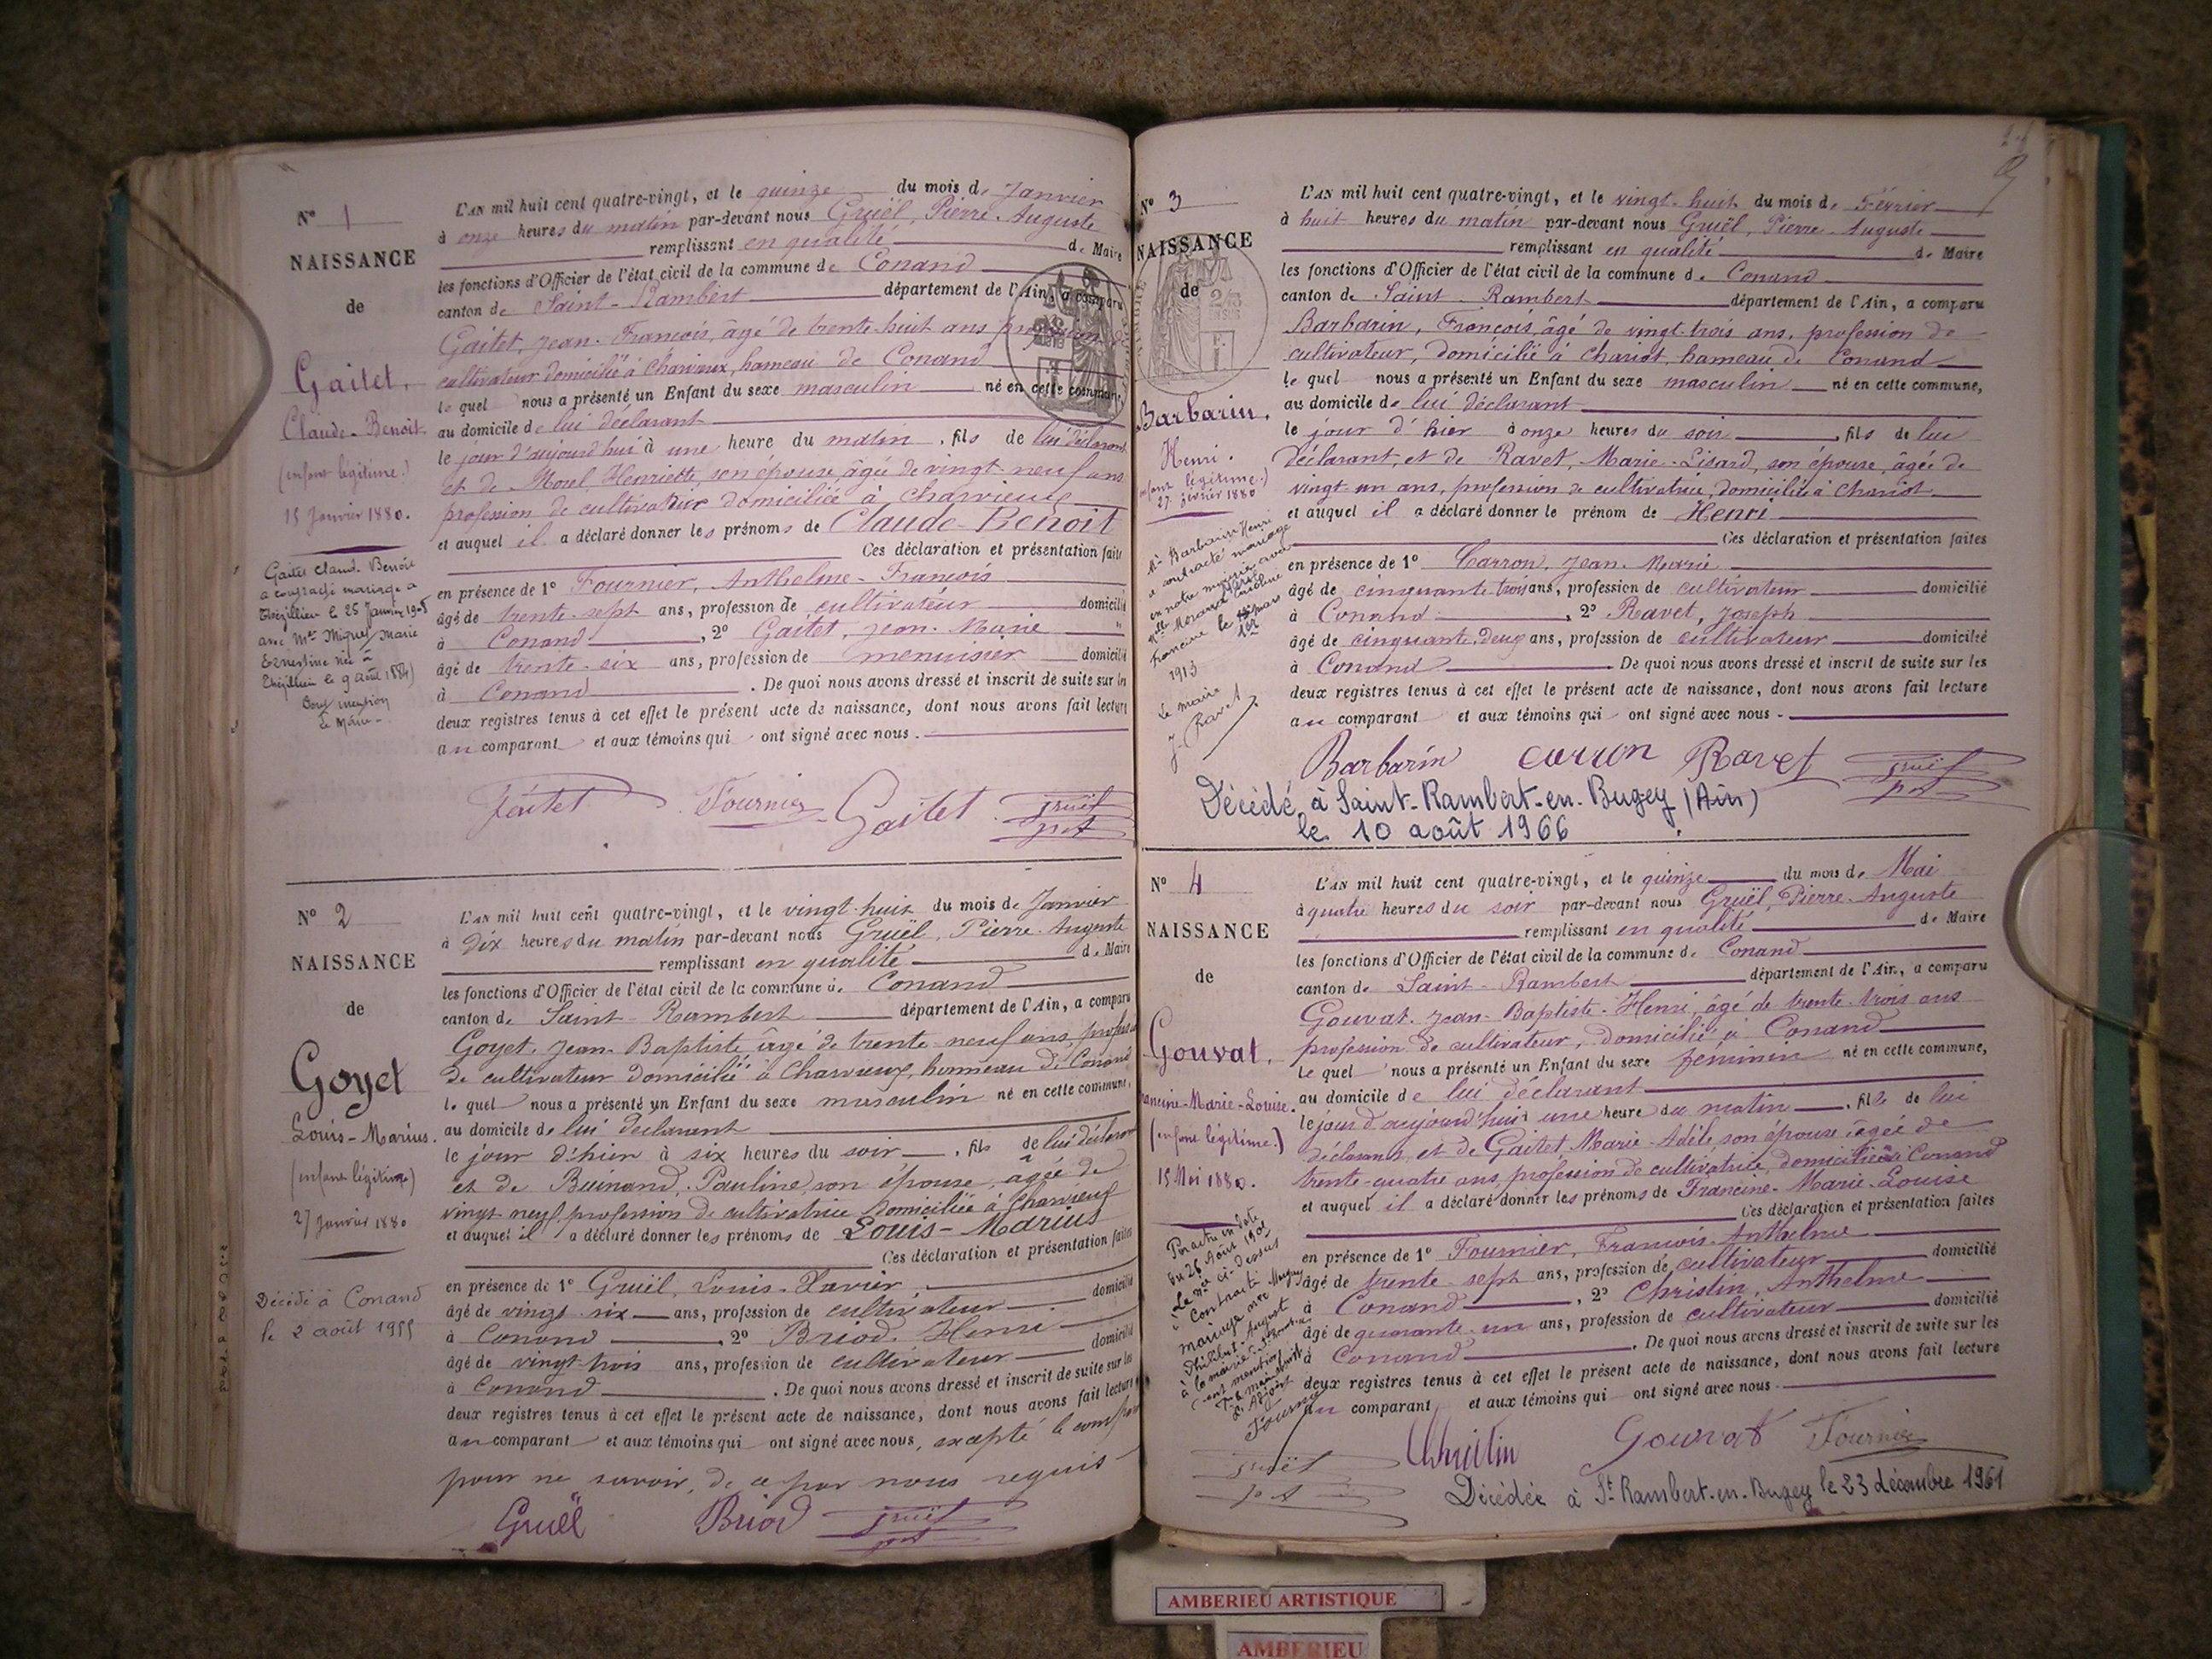 N° 1
NAISSANCE
de
Gaitet,
Claude-Benoît
(enfant légitime.)
15 Janvier 1880.
Gaitet Claud. Benoit
a contracté mariage à
le 25 Janvier
avec Marie
Ernestine née à
le 9 août
Pour mention
Le Maire
L'AN mil huit cent quatre-vingt, et le quinze du mois de Janvier
à onze heures du matin par-devant nous Gruël, Pierre-Auguste
remplissant en qualité de Maire
les fonctions d'Officier de l'état civil de la commune de Conand
canton de Saint-Rambert département de l'Ain, a comparu
Gaitet, Jean-François, âgé de trente-huit ans profession de
cultivateur domicilié à Charvieux, hameau de Conand
le quel nous a présenté un Enfant du sexe masculin né en cette commune,
au domicile de lui déclarant
le jour d'aujourd'hui à une heure du matin, fils de lui déclarant
et de Morel Henriette, son épouse, âgée de vingt-neuf ans
profession de cultivatrice domiciliée à Charvieux
et auquel il a déclaré donner les prénoms de Claude-Benoît
Ces déclaration et présentation faites
en présence de 1° Fournier, Anthelme-François
âgé de trente-sept ans, profession de cultivateur domicilié
à Conand, 2° Gaitet, Jean-Marie
âgé de trente-six ans, profession de menuisier domicilié
à Conand. De quoi nous avons dressé et inscrit de suite sur les
deux registres tenus à cet effet le présent acte de naissance, dont nous avons fait lecture
au comparant et aux témoins qui ont signé avec nous.
Gaitet Fournier Gaitet Gruël
N° 2
NAISSANCE
de
Goyet
Louis-Marius.
(enfant légitime)
27 Janvier 1880
Décédé à Conand
le 2 août 1955
L'AN mil huit cent quatre-vingt, et le vingt-huit du mois de Janvier
à dix heures du matin par-devant nous Gruël, Pierre-Auguste
remplissant en qualité de Maire
les fonctions d'Officier de l'état civil de la commune de Conand
canton de Saint-Rambert département de l'Ain, a comparu
Goyet, Jean-Baptiste âgé de trente-neuf ans, profession
de cultivateur domicilié à Charvieux, hameau de Conand
le quel nous a présenté un Enfant du sexe masculin né en cette commune,
au domicile de lui déclarant
le jour d'hier à six heures du soir, fils de lui déclarant
et de Buinand, Pauline, son épouse, âgée de
vingt-neuf, profession de cultivatrice domiciliée à Charvieux
et auquel il a déclaré donner les prénoms de Louis-Marius
Ces déclaration et présentation faites
en présence de 1° Gruël, Louis-Xavier, domicilié
âgé de vingt-six ans, profession de cultivateur
à Conand, 2° Briod, Henri
âgé de vingt-trois ans, profession de cultivateur domicilié
à Conand. De quoi nous avons dressé et inscrit de suite sur les
deux registres tenus à cet effet le présent acte de naissance, dont nous avons fait lecture
au comparant et aux témoins qui ont signé avec nous, excepté le comparant
pour ne savoir, de ce par nous requis
Gruël Briod Gruël
N° 3
NAISSANCE
de
Barbarin.
Henri.
enfant légitime.)
27 février 1880
Mr Barbarin Henri
a contracté mariage
en notre mairie avec
Francine le
1er mars
1913
Le maire
J. Ravet
L'AN mil huit cent quatre-vingt, et le vingt-huit du mois de Février
à huit heures du matin par-devant nous Gruël, Pierre-Auguste
remplissant en qualité de Maire
les fonctions d'Officier de l'état civil de la commune de Conand
canton de Saint-Rambert département de l'Ain, a comparu
Barbarin, François, âgé de vingt-trois ans, profession de
cultivateur, domicilié à Chariot, hameau de Conand
le quel nous a présenté un Enfant du sexe masculin né en cette commune,
au domicile de lui déclarant
le jour d'hier à onze heures du soir, fils de lui
déclarant, et de Ravet, Marie-Lisard, son épouse, âgée de
vingt-un ans, profession de cultivatrice, domiciliée à Chariot
et auquel il a déclaré donner le prénom de Henri
Ces déclaration et présentation faites
en présence de 1° Carron, Jean-Marie
âgé de cinquante-trois ans, profession de cultivateur domicilié
à Conand, 2° Ravet, Joseph
âgé de cinquante-deux ans, profession de cultivateur domicilié
à Conand. De quoi nous avons dressé et inscrit de suite sur les
deux registres tenus à cet effet le présent acte de naissance, dont nous avons fait lecture
au comparant et aux témoins qui ont signé avec nous.
Barbarin Carron Ravet Gruël
Décédé à Saint-Rambert-en-Bugey (Ain)
le 10 août 1966
N° 4
NAISSANCE
de
Gouvat,
Francine-Marie-Louise.
(enfant légitime.)
15 Mai 1880.
Par acte en date
du 26 Août
Le n° 4 ci-dessus
a contracté
mariage avec
à la mairie de
dont mention
L'Adjoint
Fournier
L'AN mil huit cent quatre-vingt, et le quinze du mois de Mai
à quatre heures du soir par-devant nous Gruël, Pierre-Auguste
remplissant en qualité de Maire
les fonctions d'Officier de l'état civil de la commune de Conand
canton de Saint-Rambert département de l'Ain, a comparu
Gouvat, Jean-Baptiste-Henri, âgé de trente-trois ans
profession de cultivateur, domicilié à Conand
le quel nous a présenté un Enfant du sexe féminin né en cette commune,
au domicile de lui déclarant
le jour d'aujourd'hui à une heure du matin, fille de lui
déclarant, et de Gaitet, Marie-Adèle son épouse, âgée de
trente-quatre ans, profession de cultivatrice, domiciliée à Conand
et auquel il a déclaré donner les prénoms de Francine-Marie-Louise
Ces déclaration et présentation faites
en présence de 1° Fournier, François-Anthelme
âgé de trente-sept ans, profession de cultivateur domicilié
à Conand, 2° Christin, Anthelme
âgé de quarante-un ans, profession de cultivateur domicilié
à Conand. De quoi nous avons dressé et inscrit de suite sur les
deux registres tenus à cet effet le présent acte de naissance, dont nous avons fait lecture
au comparant et aux témoins qui ont signé avec nous.
Gruël Christin Gouvat Fournier
Décédée à St Rambert-en-Bugey le 23 décembre 1961
AMBERIEU ARTISTIQUE
AMBERIEU